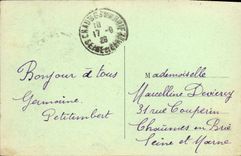 18
17-8
SEINE-ET-MARNE
Bonjour à tous
Germaine
Petitembert
Mademoiselle
Marcelline Deviercy
31 rue Couperin
Chaumes en Brie
Seine et Marne